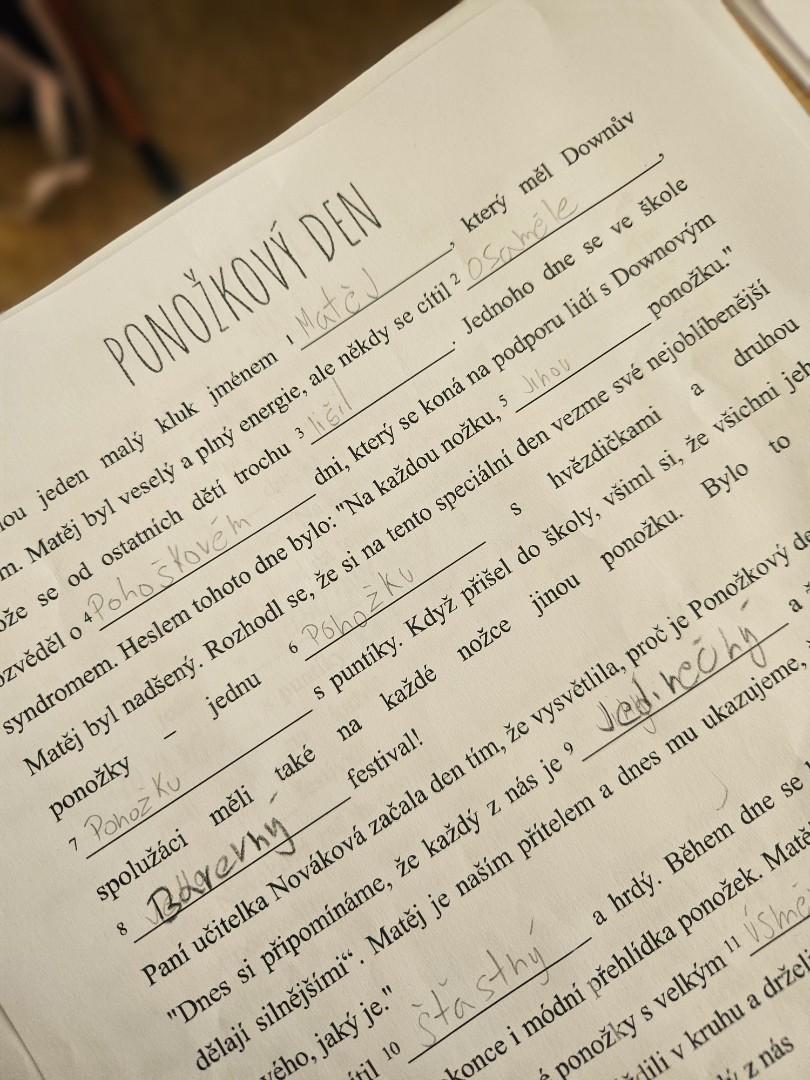 PONOŽKOVÝ DEN
nou jeden malý kluk jménem 1 Matěj, který měl Downův
m. Matěj byl veselý a plný energie, ale někdy se cítil 2 osaměle,
ože se od ostatních dětí trochu 3 lišil. Jednoho dne se ve škole
ozvěděl o 4 Pohoškovém dni, který se koná na podporu lidí s Downovým
syndromem. Heslem tohoto dne bylo: "Na každou nožku, 5 Jihou ponožku."
Matěj byl nadšený. Rozhodl se, že si na tento speciální den vezme své nejoblíbenější
ponožky – jednu 6 Pohožku s hvězdičkami a druhou
7 Pohožku s puntíky. Když přišel do školy, všiml si, že všichni jeh
spolužáci měli také na každé nožce jinou ponožku. Bylo to
8 Barevný festival!
Paní učitelka Nováková začala den tím, že vysvětlila, proč je Ponožkový de
"Dnes si připomínáme, že každý z nás je 9 Jedinečný a ž
dělají silnějšími“. Matěj je naším přítelem a dnes mu ukazujeme,
vého, jaký je."
ítil 10 šťastný a hrdý. Během dne se
konce i módní přehlídka ponožek. Matě
é ponožky s velkým 11 úsmě
dili v kruhu a drželi
z nás